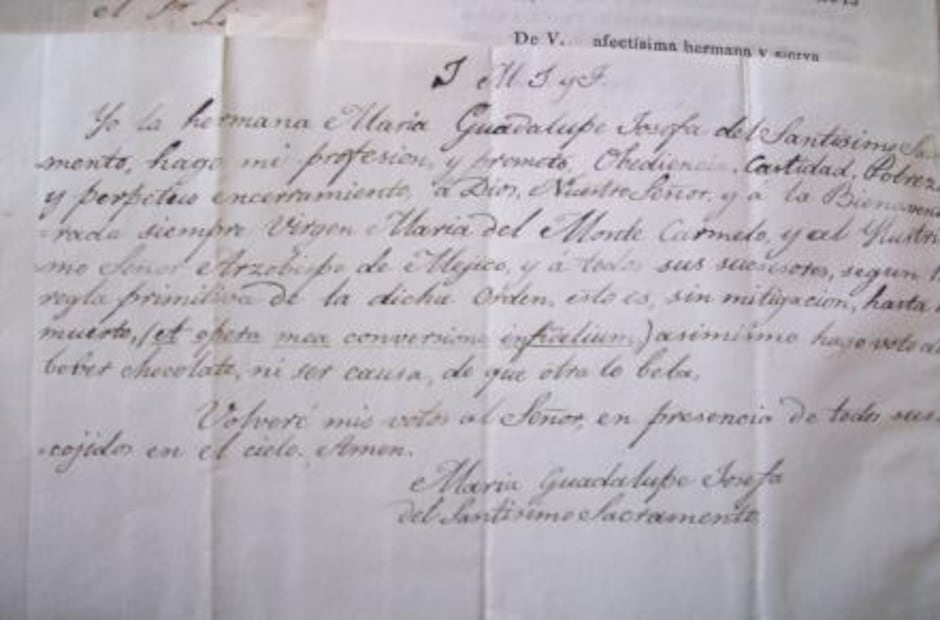 el Sr
De V. afectísima hermana y sierva
J M J y J.
Yo la hermana Maria Guadalupe Josefa del Santisimo Sa
mento, hago mi profesion, y prometo, Obediencia, Castidad, Pobrez
y perpetuo encerramiento, á Dios, Nuestro Señor, y á la Bienaven
-rada siempre Virgen Maria del Monte Carmelo, y al Ylustri
mo Señor Arzobispo de Mejico, y á todos sus sucesores, segun l
regla primitiva de la dicha Orden, esto es, sin mitigacion, hasta
muerte, (et opera mea conversione infidelium) asimismo hago voto d
bever chocolate, ni ser causa, de que otra lo beba.
Volveré mis votos al Señor, en presencia de todos sus
-cojidos en el cielo. Amen.
Maria Guadalupe Josefa
del Santisimo Sacramento